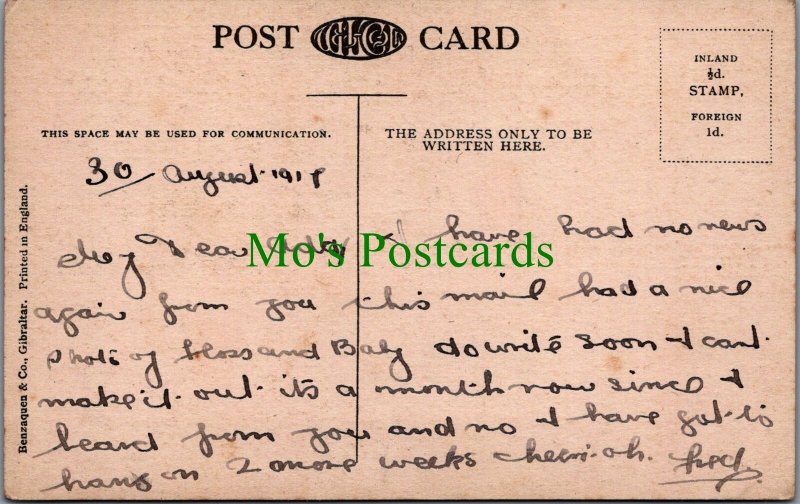 POST CARD
INLAND
½d.
STAMP,
FOREIGN
1d.
THIS SPACE MAY BE USED FOR COMMUNICATION.
THE ADDRESS ONLY TO BE
WRITTEN HERE.
Benzaquen & Co., Gibraltar. Printed in England.
30/ August 191
My Dear I have had no news
again from you this mail had a nice
photo of bloss and Baby do write soon I cant
make it out its a month now since I
heard from you and no I have got to
hang on 2 more weeks cheeri-oh.
Mo's Postcards